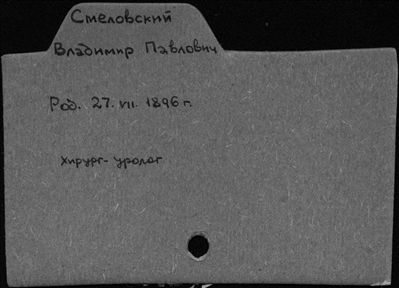 Смеловский
Владимир Павлович
Род. 27. VII. 1896 г.
хирург-уролог